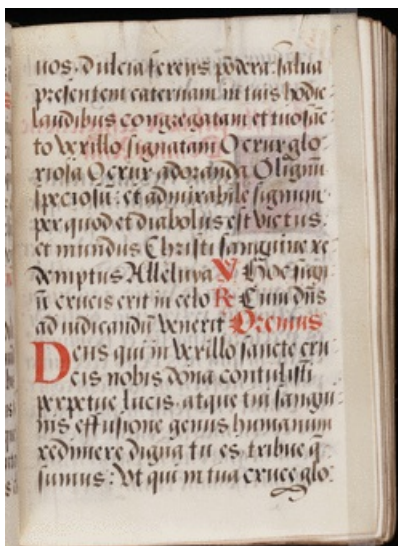 uos. dulcia ferens põdera. salua
presentem cateruam in tuis hodie
laudibus congregatam et tuo sãc
to vexillo signatam O crux glo-
riosa O crux adoranda O lignũ
speciosũ: et admirabile signum:
per quod et diabolus est victus.
et mundus Christi sanguine re-
demptus Alleluya V Hoc sign
ũ crucis erit in celo R Cum dñs
ad iudicandũ venerit Oremus
Deus qui in vexillo sancte cru-
cis nobis dona contulisti
perpetue lucis. atque tui sangui-
nis effusione genus humanum
redimere digna tu es. tribue q̃
sumus: Vt qui in tua cruce glo: